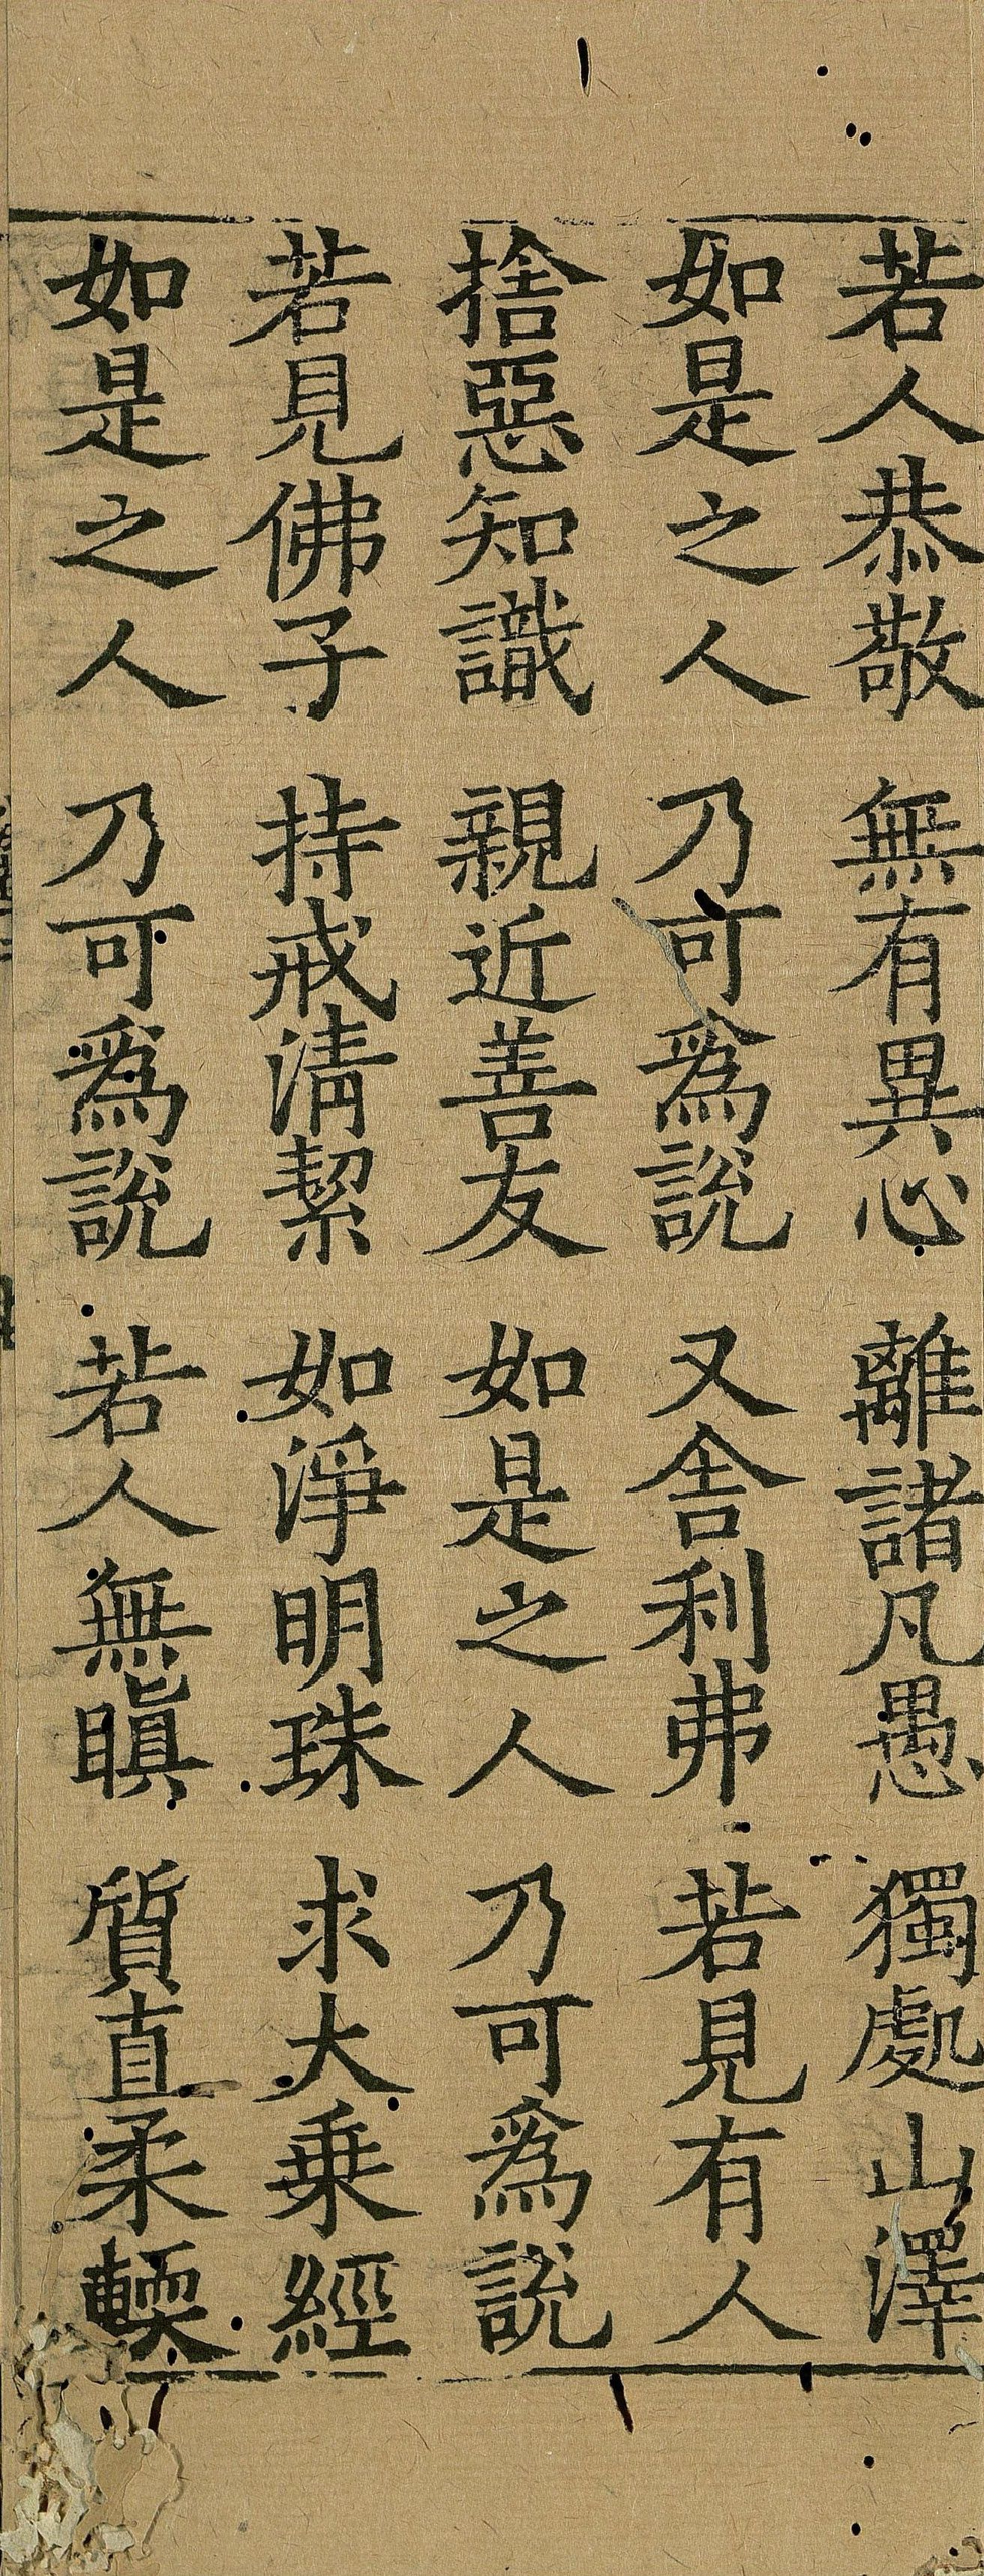 若人恭敬　無有異心　離諸凡愚　獨處山澤
如是之人　乃可爲說　又舍利弗　若見有人
捨惡知識　親近善友　如是之人　乃可爲說
若見佛子　持戒清潔　如淨明珠　求大乗經
如是之人　乃可爲說　若人無瞋　質直柔輭